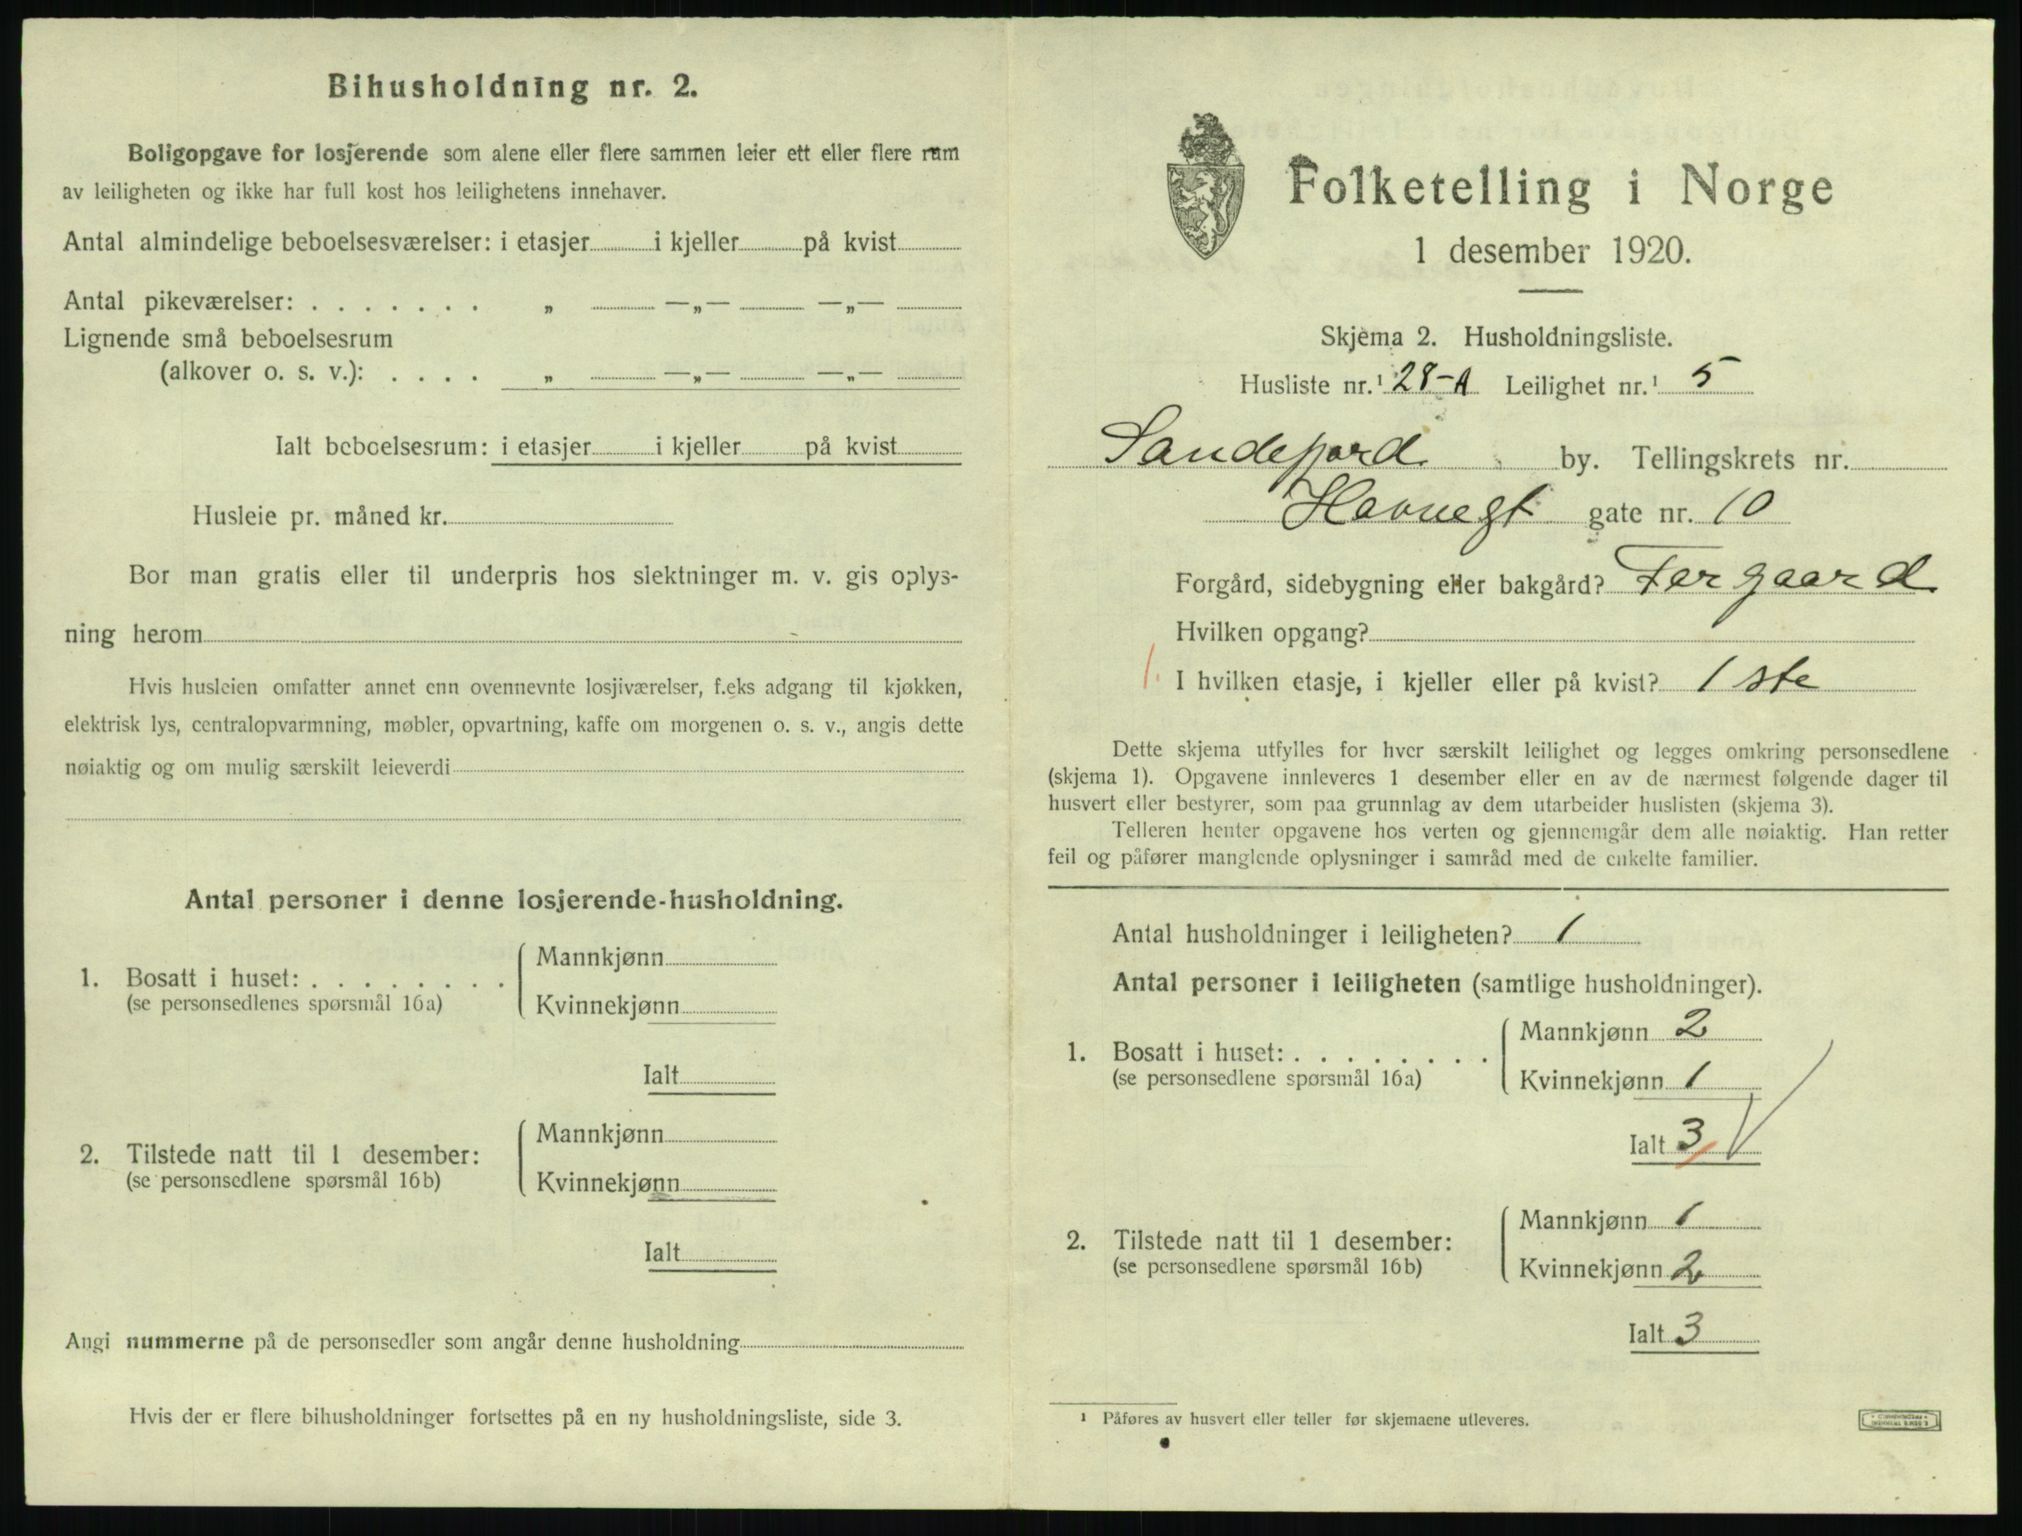 Bihusholdning nr. 2.
Boligopgave for losjerende som alene eller flere sammen leier ett eller flere rum
av leiligheten og ikke har full kost hos leilighetens innehaver.
Antal almindelige beboelsesværelser: i etasjer i kjeller på kvist
Antal pikeværelser: . . . . . . . „ —„— —„—
Lignende små beboelsesrum
(alkover o. s. v.): . . . . „ —„— —„—
Ialt beboelsesrum: i etasjer i kjeller på kvist
Husleie pr. måned kr.
Bor man gratis eller til underpris hos slektninger m. v. gis oplys-
ning herom
Hvis husleien omfatter annet enn ovennevnte losjiværelser, f.eks adgang til kjøkken,
elektrisk lys, centralopvarmning, møbler, opvartning, kaffe om morgenen o. s. v., angis dette
nøiaktig og om mulig særskilt leieverdi
Antal personer i denne losjerende-husholdning.
1. Bosatt i huset: . . . . . . . .
(se personsedlenes spørsmål 16a)
Mannkjønn
Kvinnekjønn
Ialt
2. Tilstede natt til 1 desember:
(se personsedlene spørsmål 16b)
Mannkjønn
Kvinnekjønn
Ialt
Angi nummerne på de personsedler som angår denne husholdning
Hvis der er flere bihusholdninger fortsettes på en ny husholdningsliste, side 3.
Folketelling i Norge
1 desember 1920.
Skjema 2. Husholdningsliste.
Husliste nr.¹ 28-A Leilighet nr.¹ 5
Sandefjord by. Tellingskrets nr.
Havnegt gate nr. 10
Forgård, sidebygning eller bakgård? Forgaard
Hvilken opgang?
1. I hvilken etasje, i kjeller eller på kvist? 1ste
Dette skjema utfylles for hver særskilt leilighet og legges omkring personsedlene
(skjema 1). Opgavene innleveres 1 desember eller en av de nærmest følgende dager til
husvert eller bestyrer, som paa grunnlag av dem utarbeider huslisten (skjema 3).
Telleren henter opgavene hos verten og gjennemgår dem alle nøiaktig. Han retter
feil og påfører manglende oplysninger i samråd med de enkelte familier.
Antal husholdninger i leiligheten? 1
Antal personer i leiligheten (samtlige husholdninger).
1. Bosatt i huset: . . . . . . . .
(se personsedlene spørsmål 16a)
Mannkjønn 2
Kvinnekjønn 1
Ialt 3
2. Tilstede natt til 1 desember:
(se personsedlene spørsmål 16b)
Mannkjønn 1
Kvinnekjønn 2
Ialt 3
¹ Påføres av husvert eller teller før skjemaene utleveres.